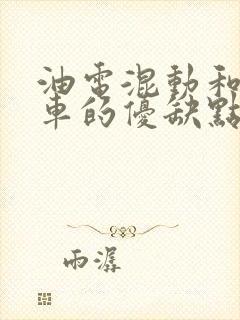 油電混動和
車的優缺點
雨潺